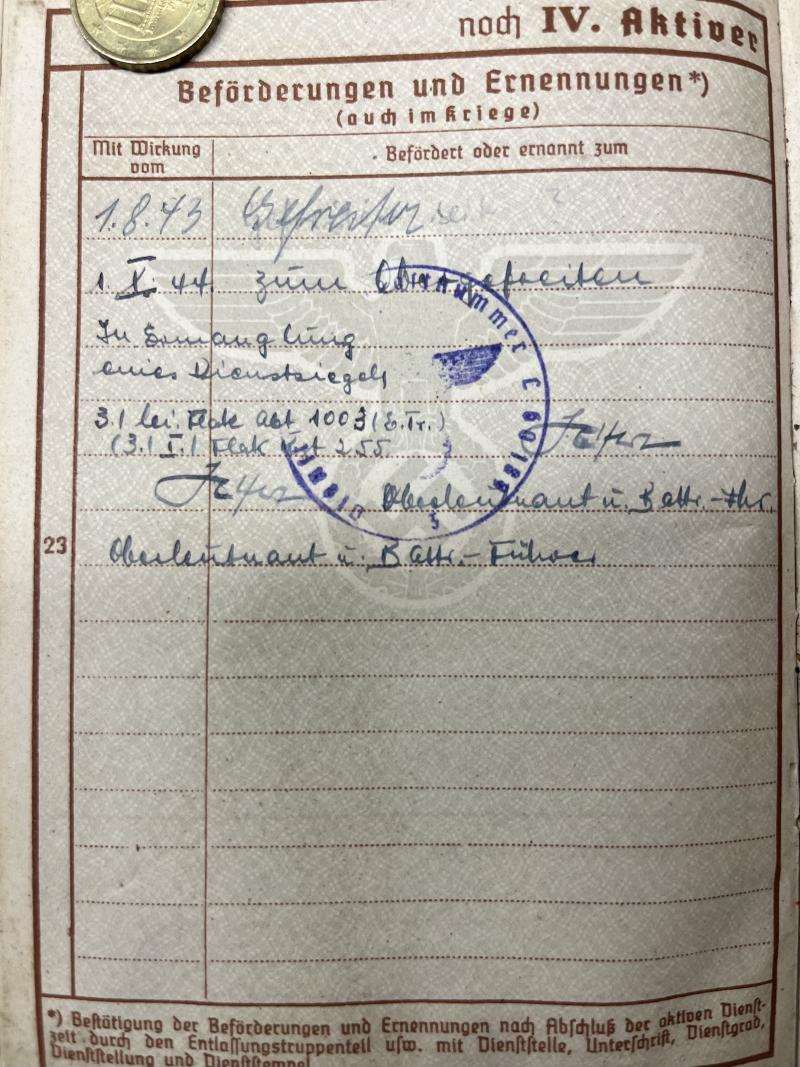 noch IV. Aktiver
Beförderungen und Ernennungen*)
(auch im Kriege)
Mit Wirkung vom
Befördert oder ernannt zum
1.8.43 Gefreiter
1. X. 44. zum Obergefreiten
In Ermanglung
eines Dienstsiegels
3./ lei. Flak Abt 1003 (E.Tr.)
(3./ I./ Flak Rgt 255
Oberleutnant u. Battr.-Fhr.
23
Oberleutnant u. Battr.-Führer
*) Bestätigung der Beförderungen und Ernennungen nach Abschluß der aktiven Dienst-
zeit durch den Entlassungstruppenteil usw. mit Dienststelle, Unterschrift, Dienstgrad,
Dienststellung und Dienststempel